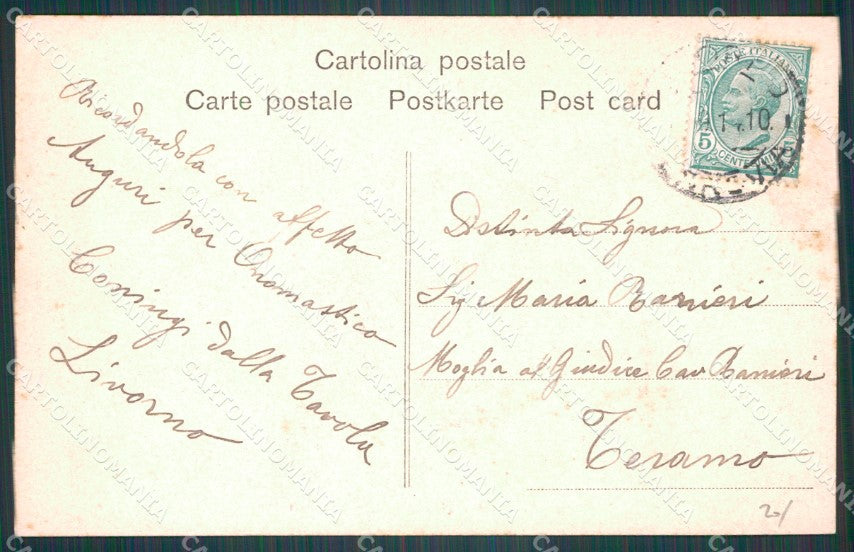 Cartolina postale
Carte postale Postkarte Post card
Ricordandola con affetto
Auguri per Onomastico
Coniugi dalla Tavola
Livorno
POSTE ITALIANE
5 CENTESIMI
10.
Distinta Signora
Sig Maria Ranieri
Moglia al Giudice Cav Ranieri
Teramo
CARTOLINOMANIA